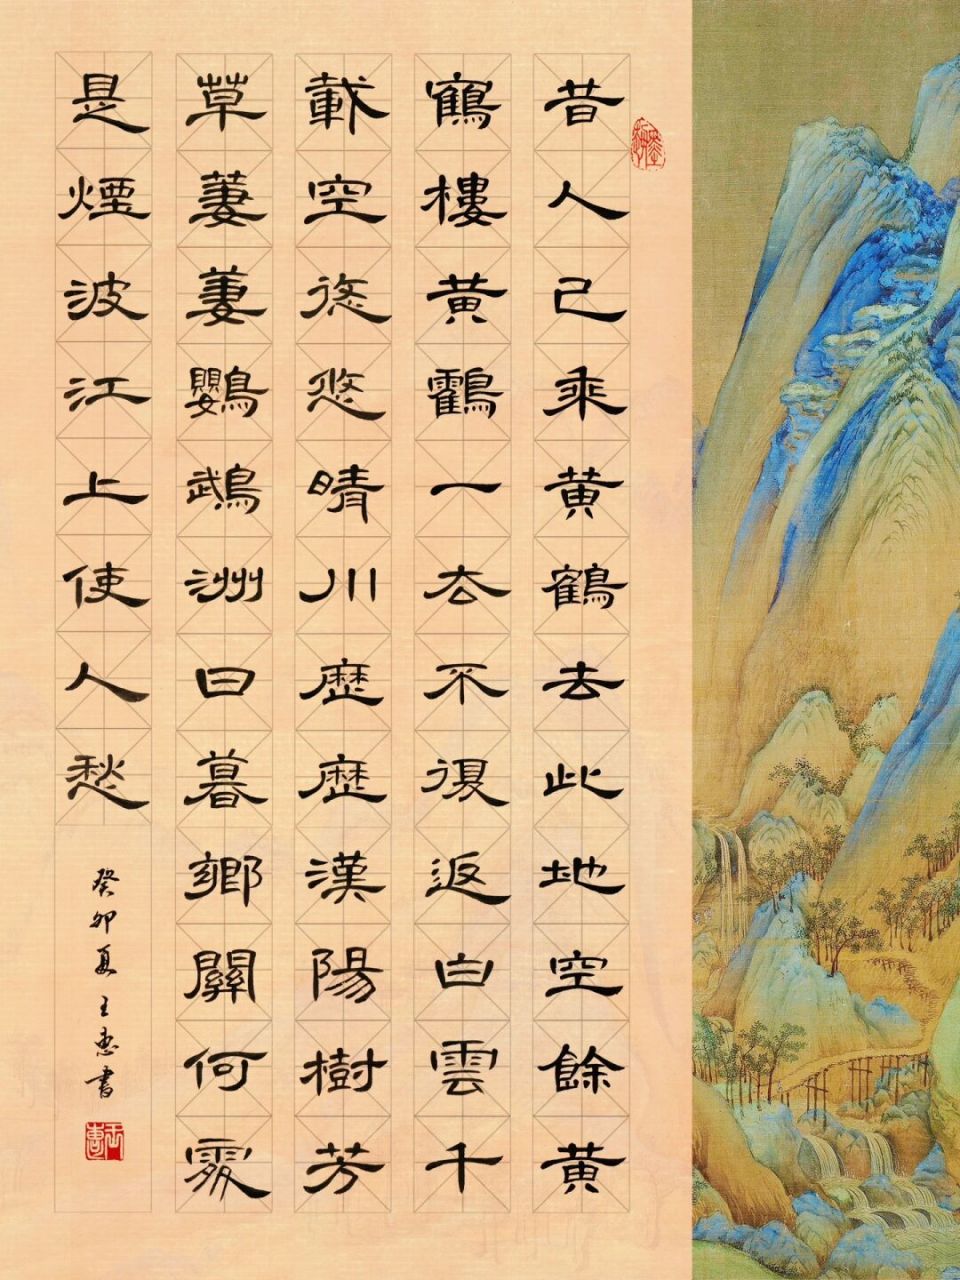 昔人已乘黄鶴去此地空餘黄
鶴樓黄鸖一去不復返白雲千
載空悠悠晴川歷歷漢陽樹芳
草萋萋鸚鵡洲日暮鄉關何處
是煙波江上使人愁
癸卯夏王惠書